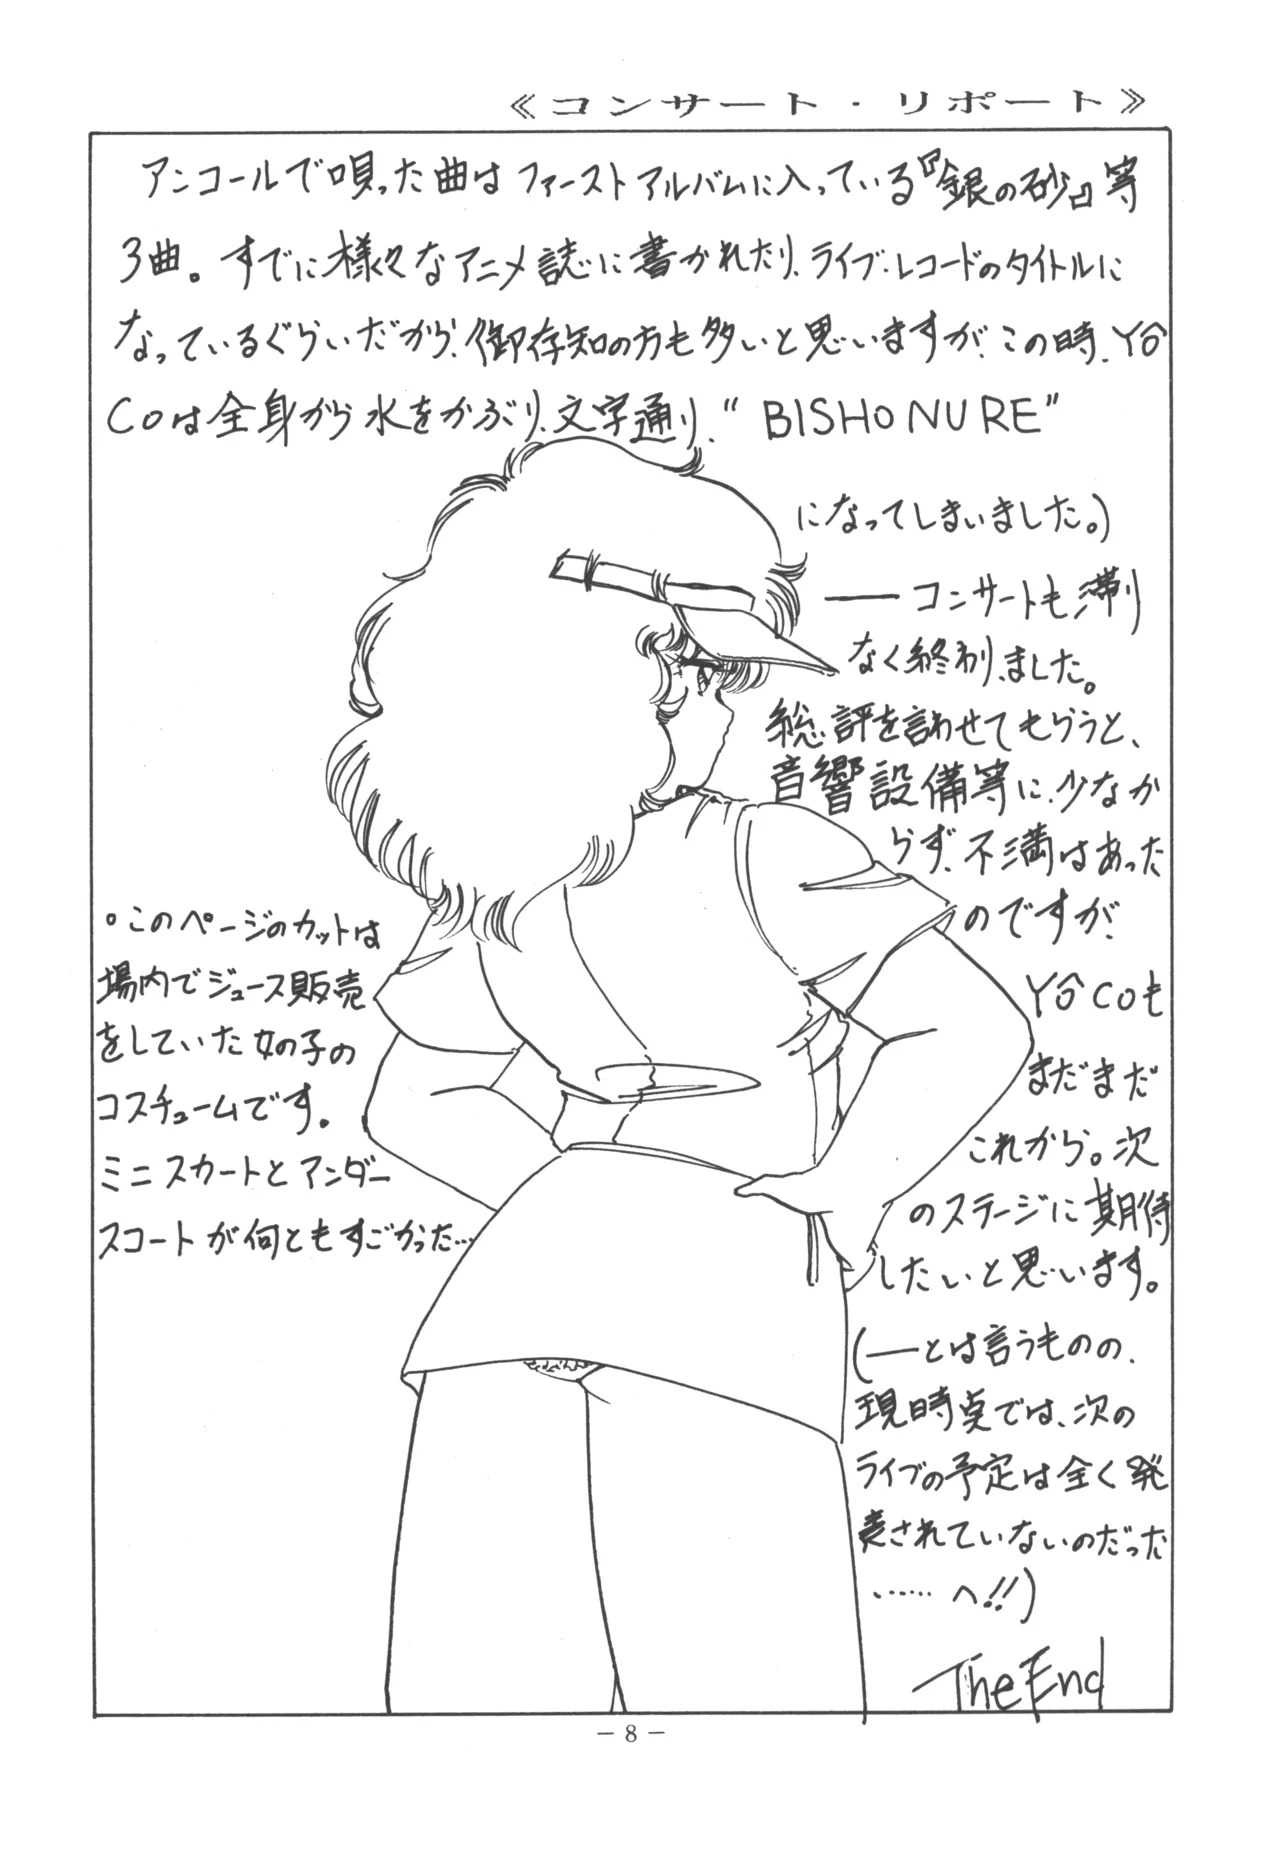 《コンサート・リポート》
アンコールで唄った曲はファーストアルバムに入っている『銀の砂』等
3曲。すでに様々なアニメ誌に書かれたり、ライブ・レコードのタイトルに
なっているぐらいだから、御存知の方も多いと思いますが、この時、YŌ
COは全身から水をかぶり、文字通り、“BISHONURE”
になってしまいました。)
——コンサートも滞り
なく終わりました。
総評を言わせてもらうと、
音響設備等に、少なか
らず、不満はあった
のですが、
YŌCOも
まだまだ
これから。次
のステージに期待
したいと思います。
(——とは言うものの、
現時点では、次の
ライブの予定は全く発
表されていないのだった
……へ!!)
The End
○このページのカットは
場内でジュース販売
をしていた女の子の
コスチュームです。
ミニスカートとアンダー
スコートが何ともすごかった…
— 8 —